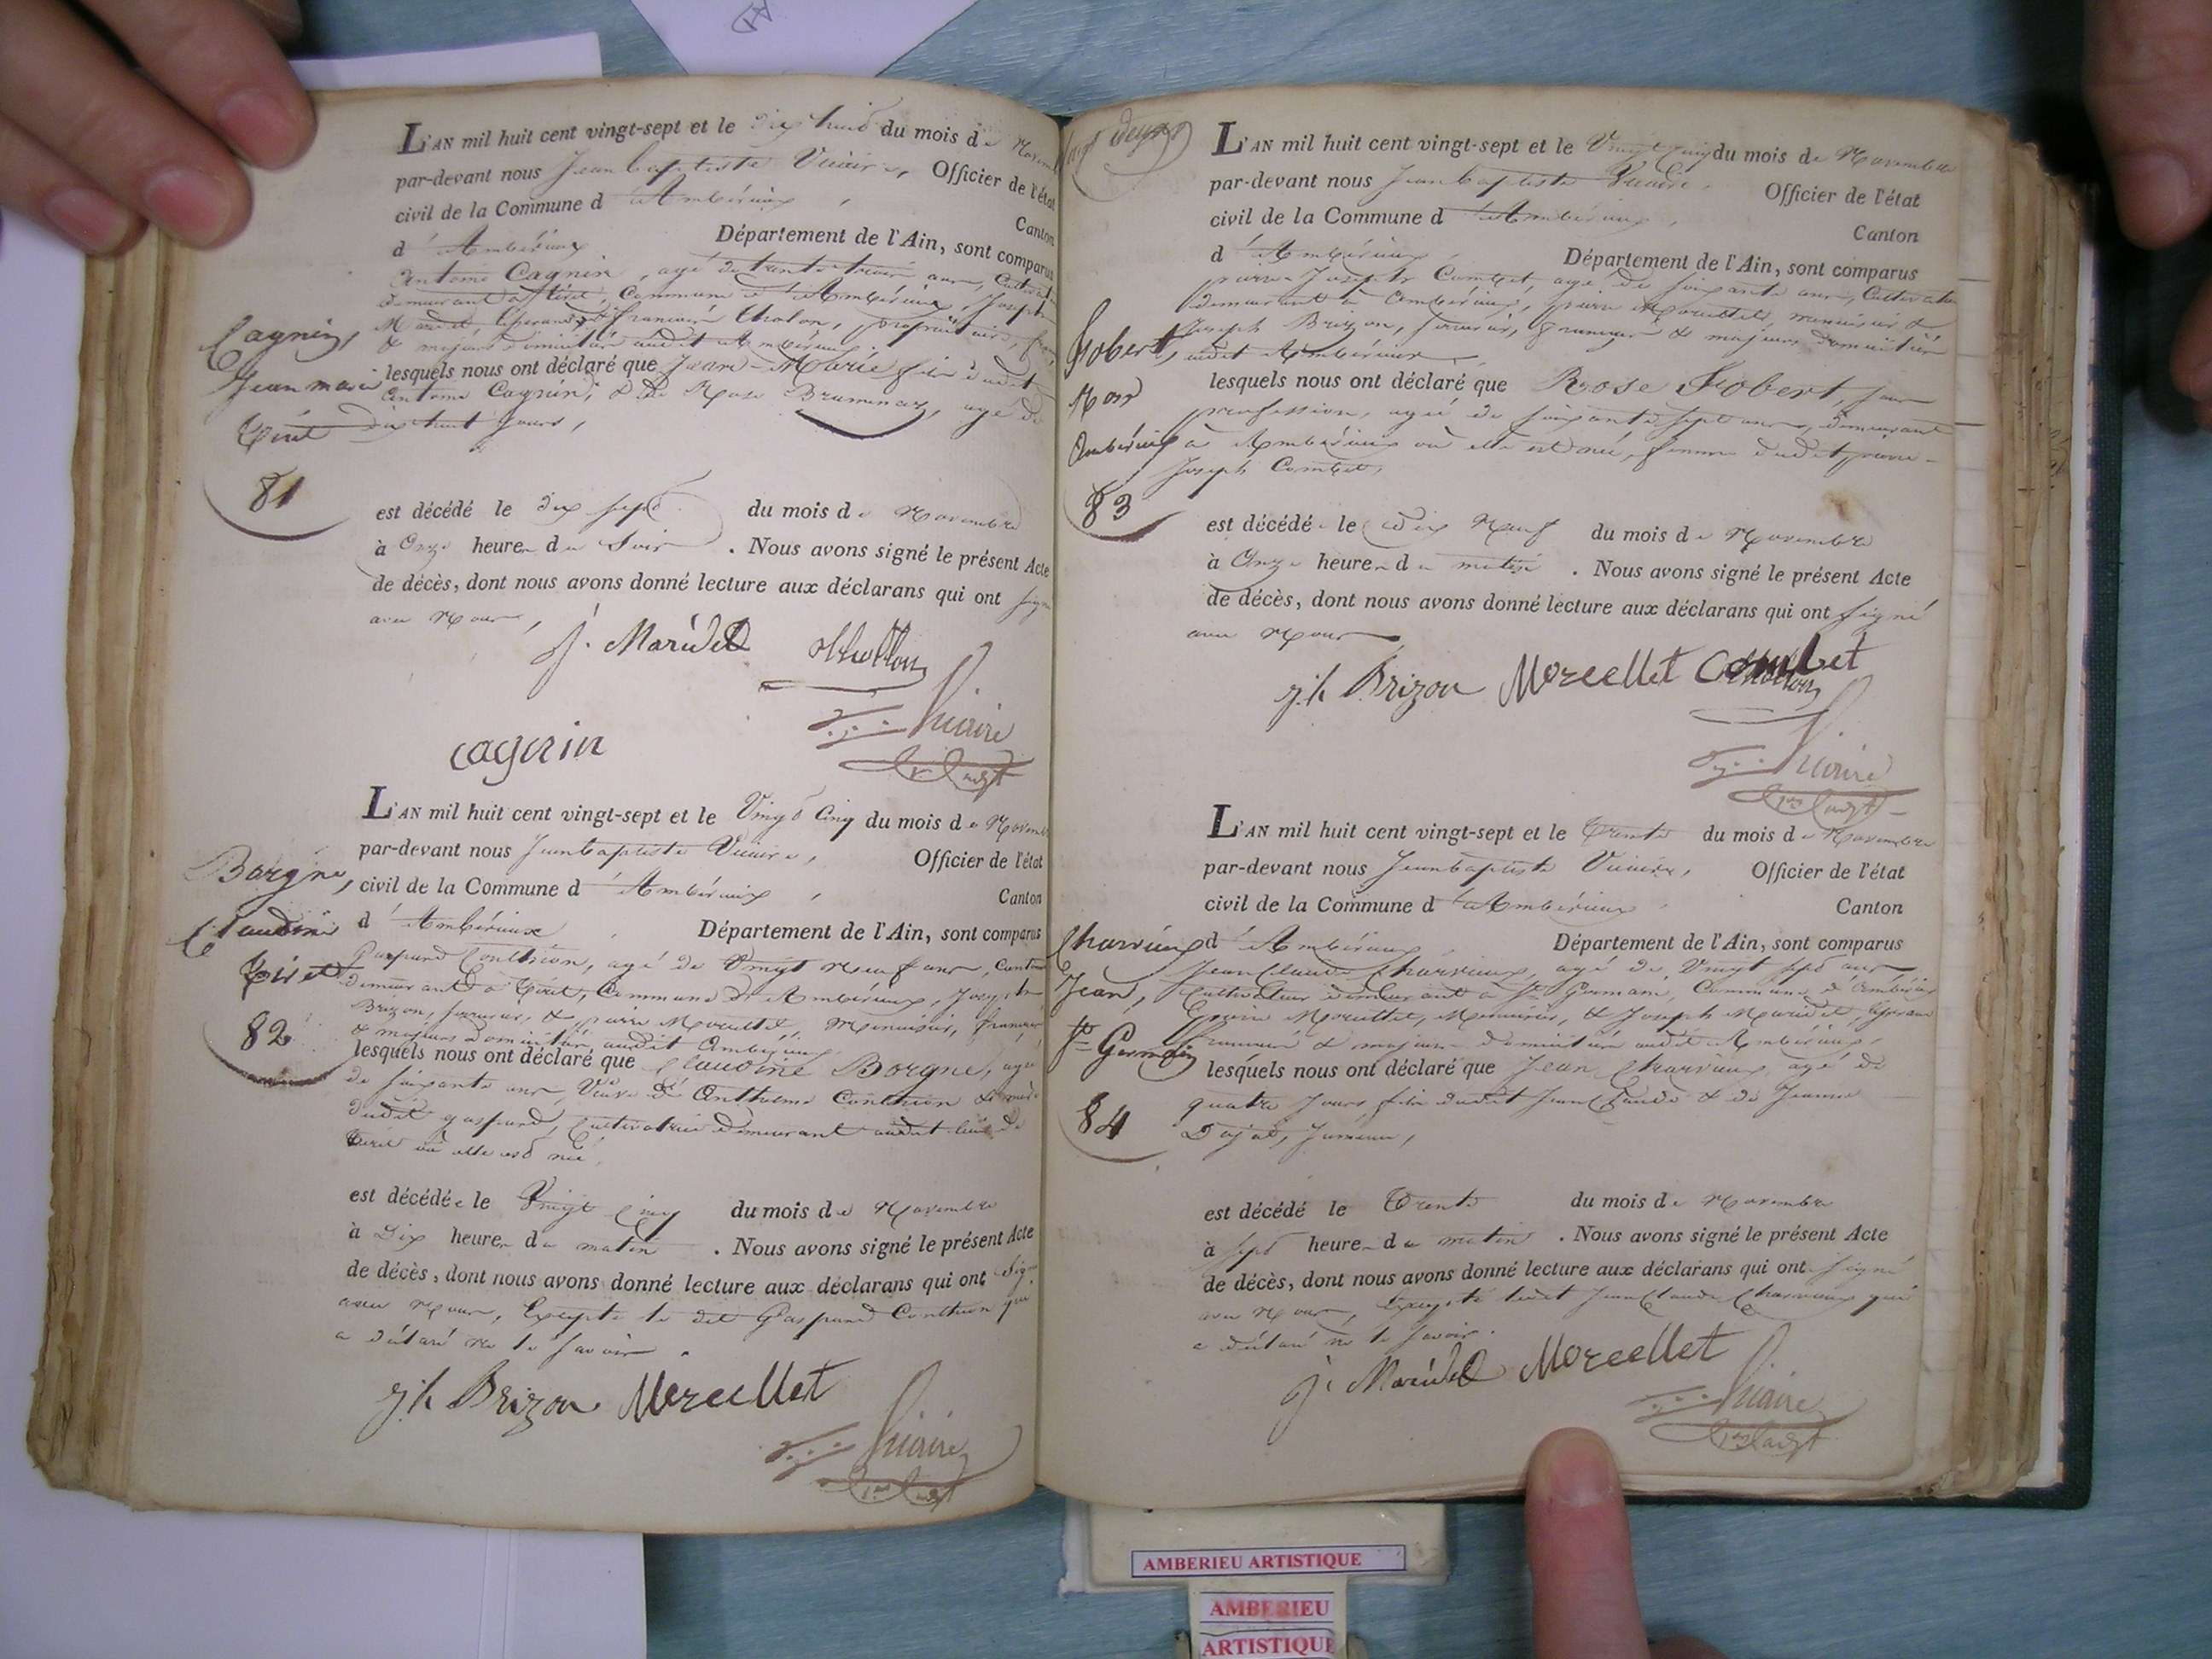 L'AN mil huit cent vingt-sept et le dix huit du mois de Novem
par-devant nous Jean baptiste Vicaire, Officier de l'état
civil de la Commune d'Ambérieux, Canton
d'Ambérieux Département de l'Ain, sont comparus
antoine Cagnin, agé de trente trois ans, Cultivat
demeurant à Tiret, Commune d'Ambérieux, Joseph
Maridet, & françois Cholon, propriétaire,
& majeurs domiciliés audit Ambérieux
lesquels nous ont déclaré que Jean-Marie fils dudit
antoine Cagnin, & de Rose Brumenay, agé de
dix huit jours,
Cagnin,
Jean marie
Tiret
81
est décédé le dix sept du mois de Novembre
à Onze heures du Soir. Nous avons signé le présent Acte
de décès, dont nous avons donné lecture aux déclarans qui ont signé
avec Nous,
J. Maridet
Cagnin
Vicaire
L'AN mil huit cent vingt-sept et le Vingt Cinq du mois de Novemb
par-devant nous Jeanbaptiste Vicaire, Officier de l'état
civil de la Commune d'Ambérieux, Canton
d'Ambérieux Département de l'Ain, sont comparus
Gaspard Conthion, agé de Vingt Neuf ans,
demeurant à Tiret, Commune d'Ambérieux, Joseph
Brizon, serrurier, & pierre Morcellet, Menuisier, français
& majeurs domiciliés audit Ambérieux
lesquels nous ont déclaré que Claudine Borgne, agée
de soixante ans, Veuve d'Anthelme Conthion & mère
dudit gaspard, Cultivatrice demeurant audit lieu de
Tiret où elle est née,
Borgne,
Claudine
Tiret
82
est décédée le Vingt Cinq du mois de Novembre
à Dix heures du matin. Nous avons signé le présent Acte
de décès, dont nous avons donné lecture aux déclarans qui ont signé
avec Nous, Excepté le dit Gaspard Conthion qui
a déclaré ne le savoir.
Jh Brizon Morcellet
Vicaire
L'AN mil huit cent vingt-sept et le Vingt Cinq du mois de Novembre
par-devant nous Jean baptiste Vicaire, Officier de l'état
civil de la Commune d'Ambérieux, Canton
d'Ambérieux, Département de l'Ain, sont comparus
pierre Joseph Combet, agé de soixante ans, Cultivateur
demeurant à Ambérieux, pierre Morcellet, menuisier &
Joseph Brizon, serrurier, français & majeurs domiciliés
audit Ambérieux,
lesquels nous ont déclaré que Rose Jobert, sans
profession, agée de soixante sept ans, demeurant
à Ambérieux où elle est née, femme dudit pierre
Joseph Combet,
Jobert,
Rose
Ambérieux
83
est décédée le dix Neuf du mois de Novembre
à Onze heures du matin. Nous avons signé le présent Acte
de décès, dont nous avons donné lecture aux déclarans qui ont signé
avec Nous
Jh Brizon Morcellet Combet
Vicaire
L'AN mil huit cent vingt-sept et le Trente du mois de Novembre
par-devant nous Jeanbaptiste Vicaire, Officier de l'état
civil de la Commune d'Ambérieux Canton
d'Ambérieux, Département de l'Ain, sont comparus
Jean Claude Charvieux, agé de Vingt sept ans,
Cultivateur demeurant à St Germain, Commune d'Ambérieux
pierre Morcellet, Menuisier, & Joseph Maridet,
français & majeurs domiciliés audit Ambérieux,
lesquels nous ont déclaré que Jean Charvieux, agé de
quatre Jours, fils dudit Jean Claude & de Jeanne
Dujat, Jumeau,
Charvieux
Jean,
St Germain
84
est décédé le Trente du mois de Novembre
à sept heures du matin. Nous avons signé le présent Acte
de décès, dont nous avons donné lecture aux déclarans qui ont signé
avec Nous, Excepté ledit Jean Claude Charvieux qui
a déclaré ne le savoir.
J. Maridet Morcellet
Vicaire
AMBERIEU ARTISTIQUE
AMBERIEU
ARTISTIQUE